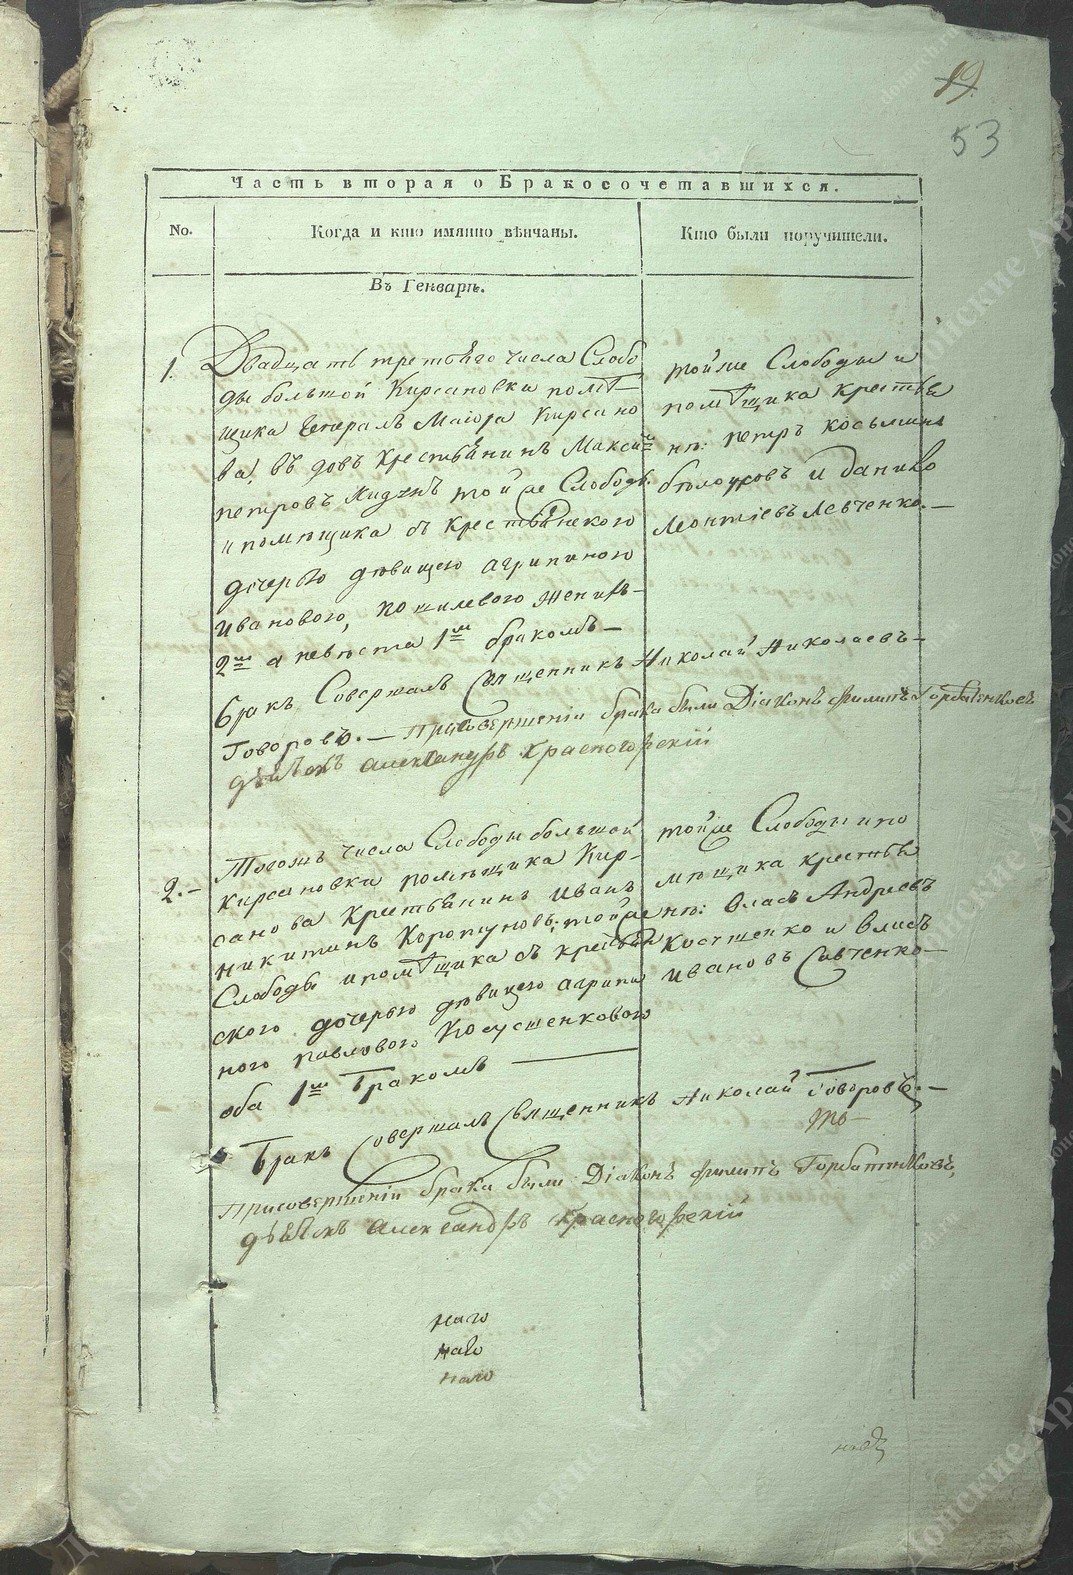 19.
53
Часть вторая о Бракосочетавшихся.
No.
Когда и кто имянно вѣнчаны.
Кто были поручители.
Въ Генварѣ.
1.
Двадцать третьяго числа Слобо
ды большой Кирсановки помѣ
щика Генералъ Маіора Кирсано
ва, въ довъ Крестьянинъ Макси
петровъ той же Слободы
и помѣщика съ крестьянского
дочерью дѣвицею агрипиною
Ивановою, Кошилевого женихъ
2м а невѣста 1м бракомъ
бракъ Совершалъ Священникъ Николай Николаевъ
Говоровъ. — присовершеніи брака были Діаконъ филипъ Горбатенковъ
дьячокъ александръ красногорскій
той же Слободы и
помѣщика крестья
не: петръ косьминъ
бѣлоусовъ и данило
Леонтіевъ Левченко.
2.
Тогожъ числа Слободы большой
кирсановки помѣщика Кир
санова крестьянинъ Иванъ
никитинъ Коротуновъ, той же
Слободы и помѣщика съ крестьян
ского дочерью дѣвицею агрипи
ною павловою Косушенковою
оба 1м бракомъ
Бракъ Совершалъ Священникъ Николай Говоровъ.
присовершеніи брака были Діаконъ филипъ Горбатенковъ,
дьячокъ александръ красногорскій
той же Слободы и по
мѣщика крестья
не: власъ Андреевъ
Косушенко и власъ
Ивановъ Савченко